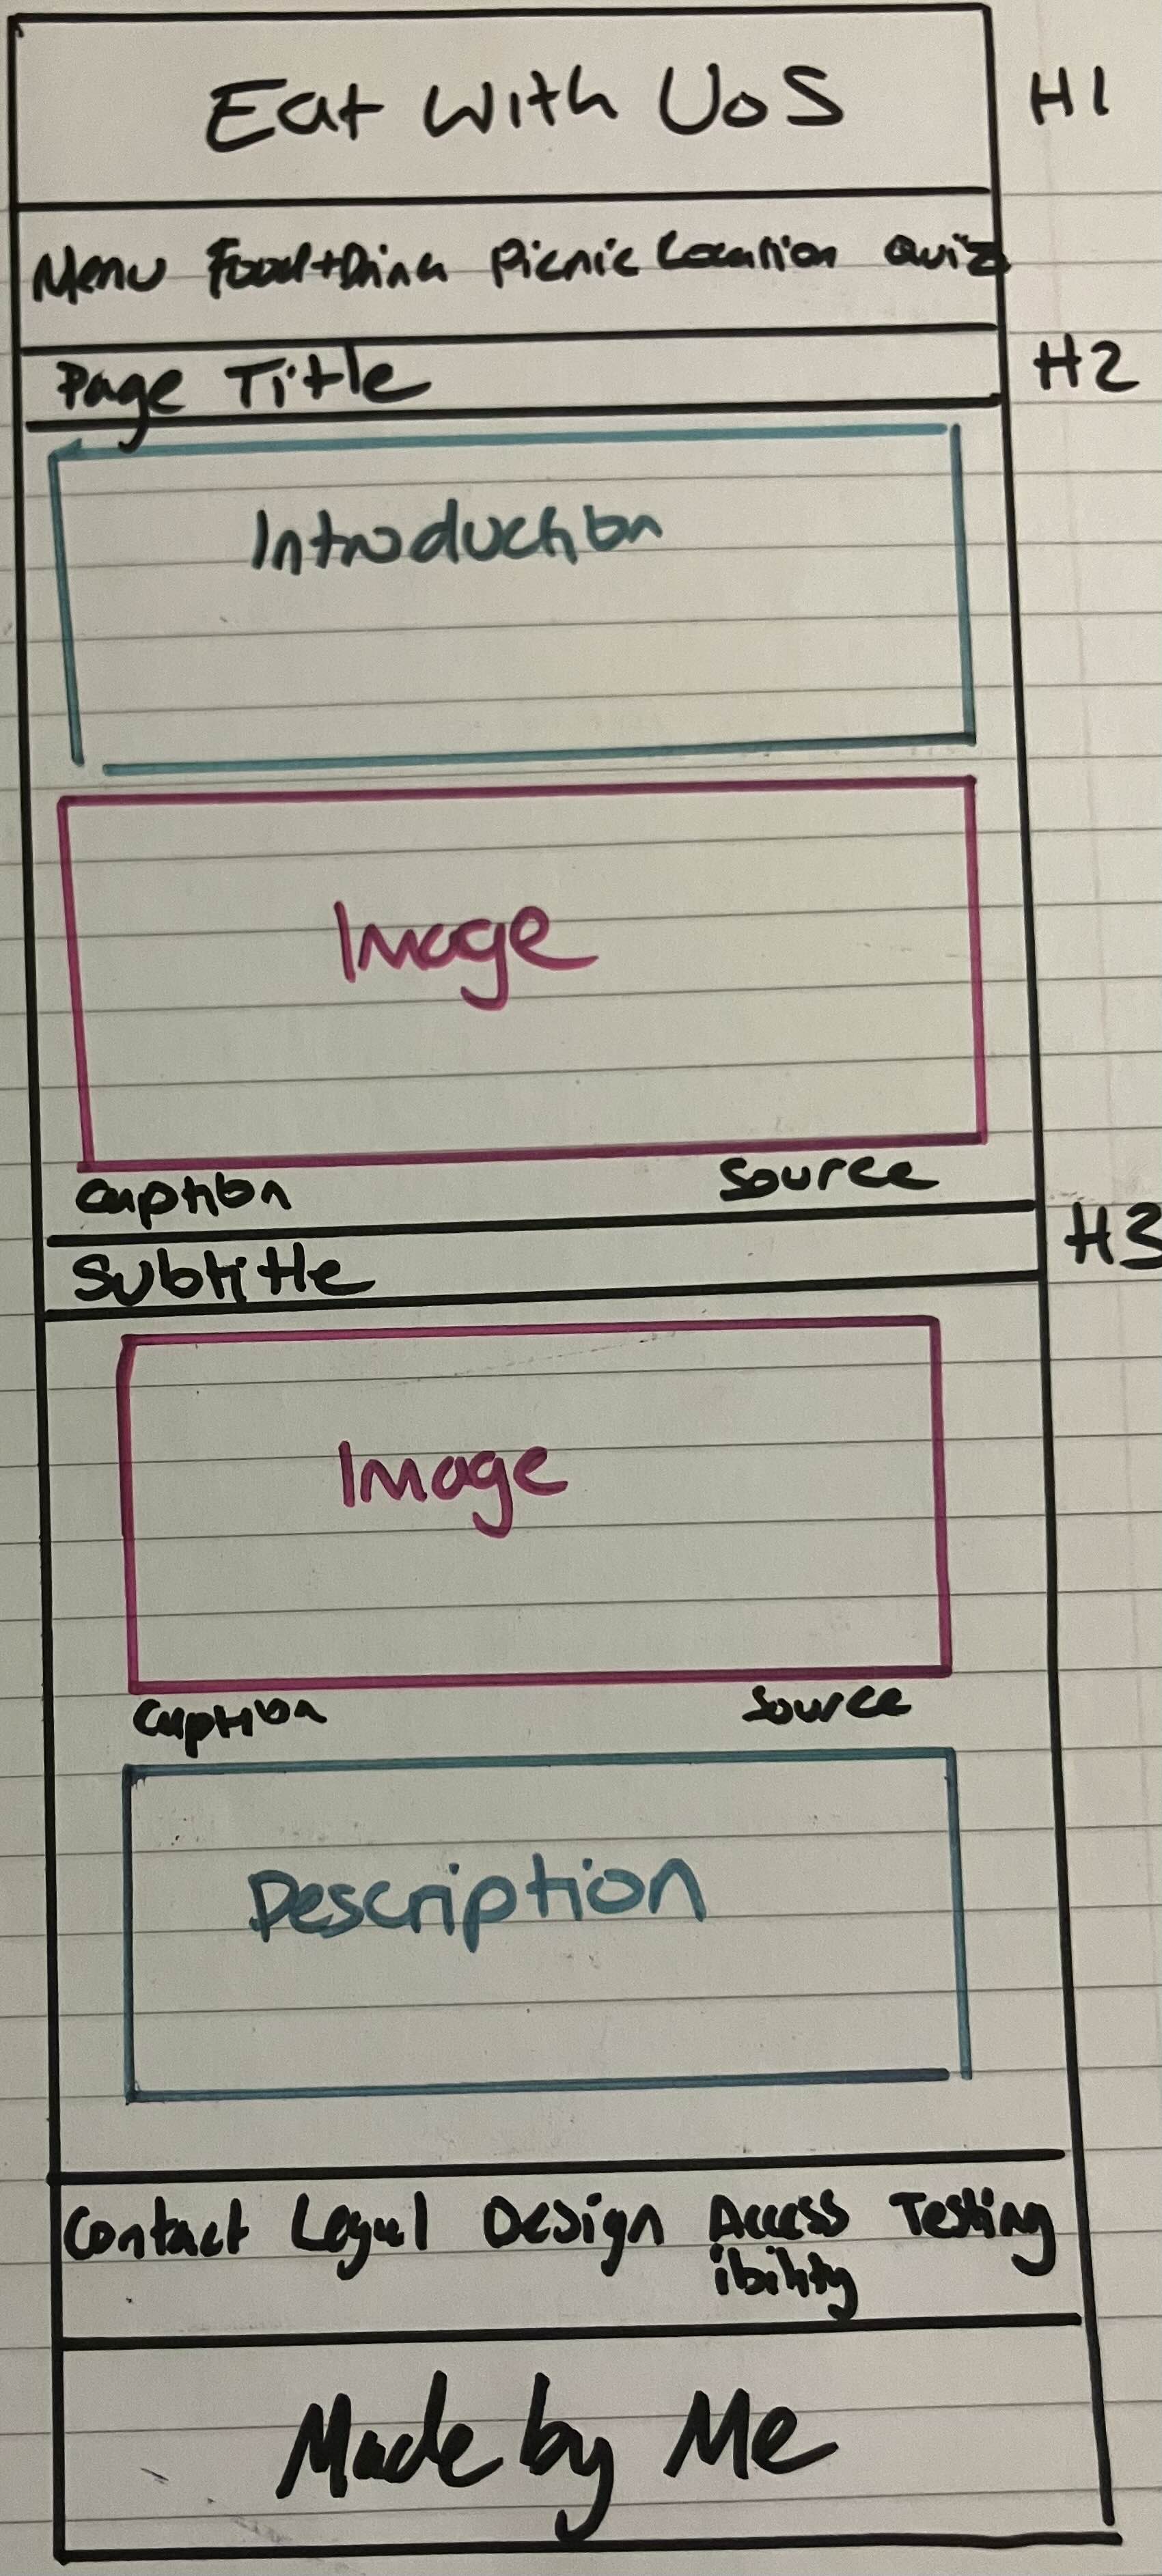 Eat With UoS H1
Menu Food+Drink Picnic Location Quiz
Page Title H2
Introduction
Image
Caption Source
Subtitle H3
Image
Caption Source
Description
Contact Legal Design Access Testing
ibility
Made by Me